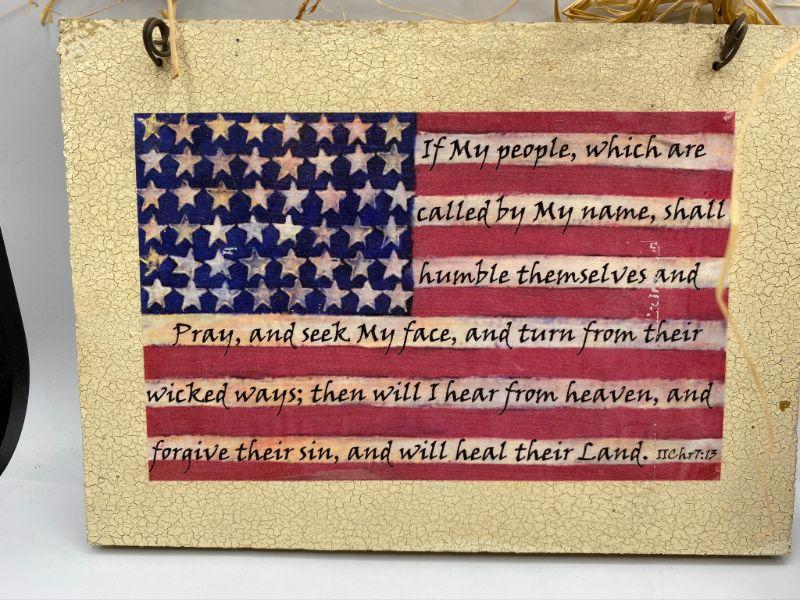 If My people, which are
called by My name, shall
humble themselves and
Pray, and seek My face, and turn from their
wicked ways; then will I hear from heaven, and
forgive their sin, and will heal their Land. IIChr7:13